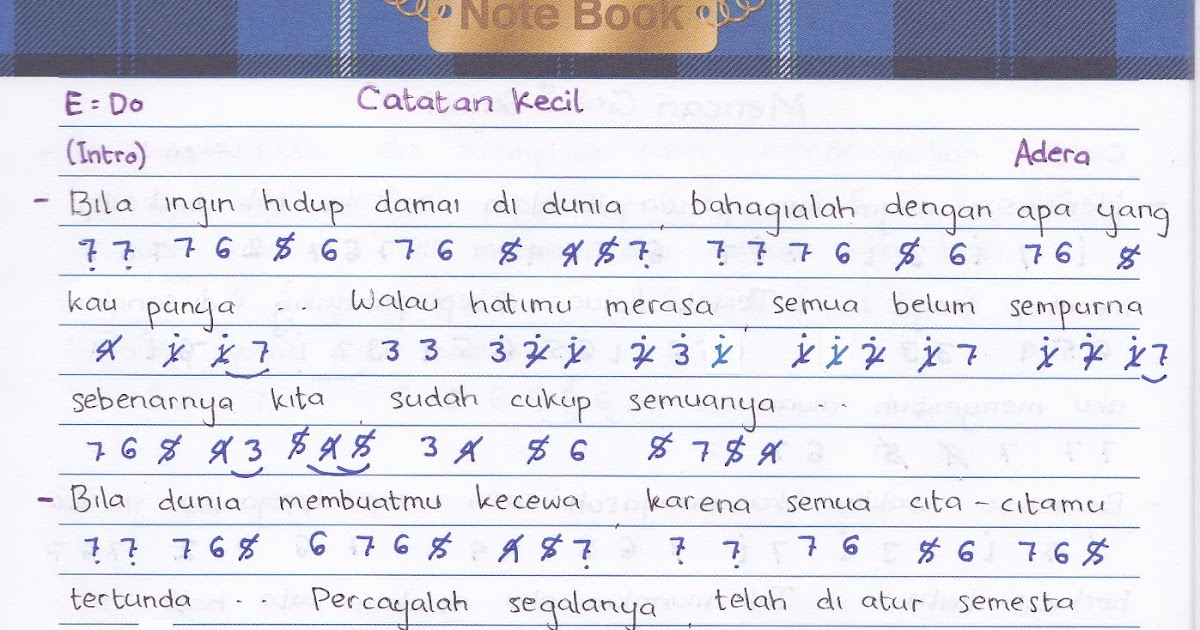 Note Book
E = Do Catatan Kecil
(Intro) Adera
- Bila ingin hidup damai di dunia, bahagialah dengan apa yang
7̣ 7̣ 7 6 5̸ 6 7 6 5̸ 4̸ 5̸ 7̣ 7̣ 7̣ 7 6 5̸ 6 7 6 5̸
kau punya . Walau hatimu merasa, semua belum sempurna
4̸ 1̸̇ 1̸̇ 7 3 3 3̇ 2̸̇ 1̸̇ 2̸̇ 3̇ 1̸̇ 1̸̇ 1̸̇ 2̸̇ 1̸̇ 7 1̸̇ 2̸̇ 1̸̇ 7
sebenarnya kita sudah cukup semuanya ...
7 6 5̸ 4̸ 3 5̸ 4̸ 5̸ 3 4̸ 5̸ 6 5̸ 7 5̸ 4̸
- Bila dunia membuatmu kecewa, karena semua cita-citamu
7̣ 7̣ 7 6 5̸ 6 7 6 5̸ 4̸ 5̸ 7̣ 7̣ 7̣ 7 6 5̸ 6 7 6 5̸
tertunda .. Percayalah segalanya, telah di atur semesta